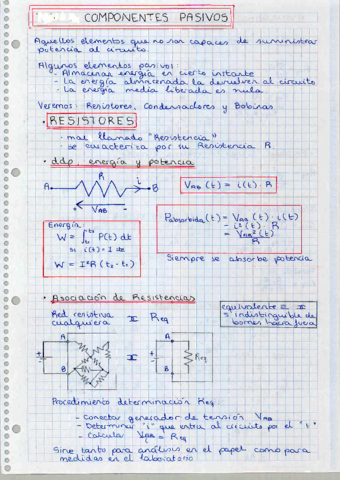 COMPONENTES PASIVOS
Aquellos elementos que no son capaces de suministrar
potencia al circuito.
Algunos elementos pasivos:
- Almacenar energía en cierto instante
- La energía almacenada la devuelven al circuito
- La energía media liberada es nula
Veremos: Resistores, Condensadores y Bobinas
· RESISTORES
- mal llamado "Resistencia"
- se caracteriza por su Resistencia R
· ddp, energía y potencia
A R i B
+ VAB -
VAB (t) = i(t) · R
Energía
W = ∫ P(t) dt
si i(t) = I
W = I²R (t2 - t1)
Pabsorbida (t) = VAB (t) · i(t)
= i²(t) · R
= VAB²(t) / R
Siempre se absorbe potencia
· Asociación de Resistencias
Red resistiva cualquiera ≡ Req
equivalente ≡
= indistinguible de
bornes hacia fuera
A B ≡ A B Req
Procedimiento determinación Req
- Conectar generador de tensión VAB
- Determinar "i" que entra al circuito por el "+"
- Calcular VAB = Req
Sirve tanto para análisis en el papel como para
medidas en el laboratorio